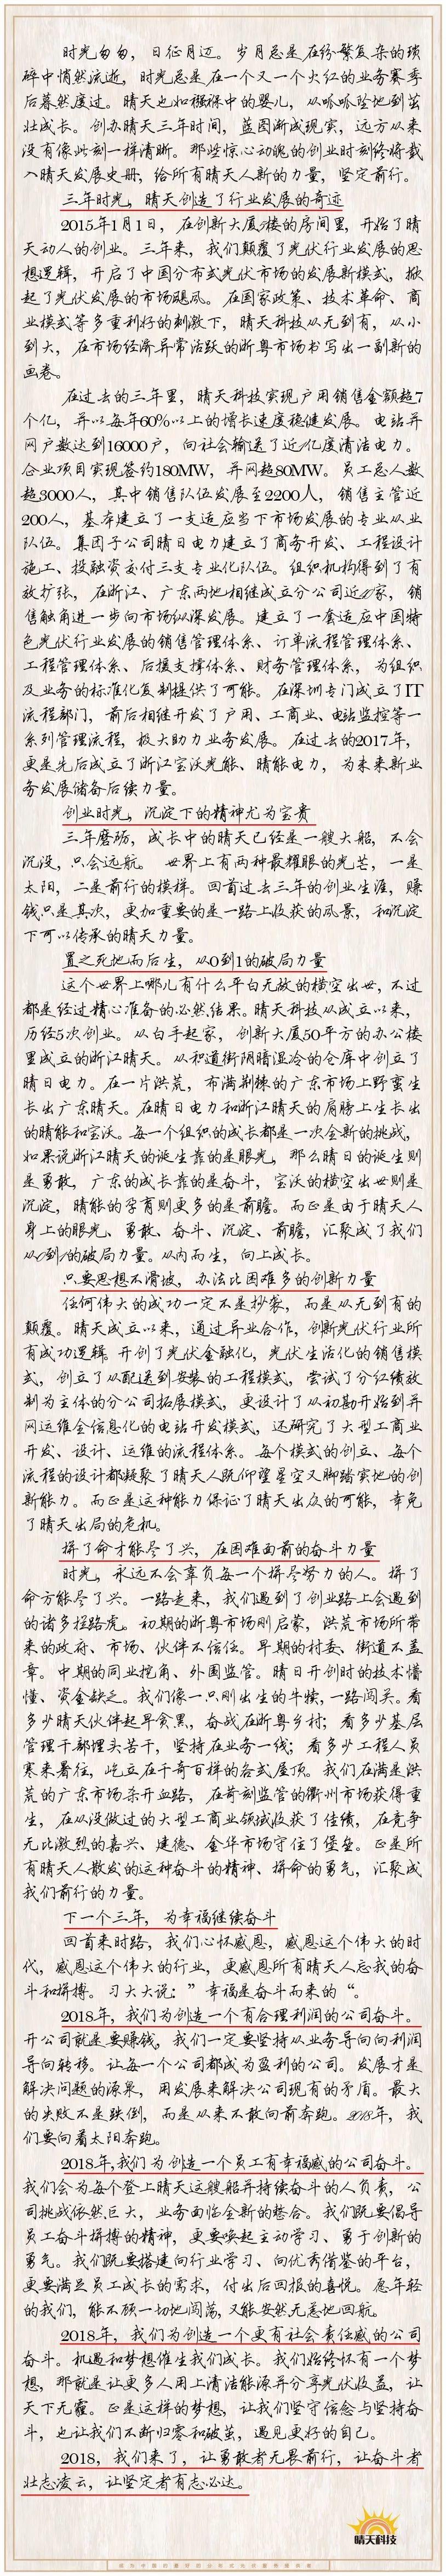 时光匆匆，日征月迈。岁月总是在纷繁复杂的琐
碎中悄然流逝，时光总是在一个又一个火红的业务赛季
后蓦然度过。晴天也如襁褓中的婴儿，从呱呱坠地到茁
壮成长。创办晴天三年时间，蓝图渐成现实，远方从来
没有像此刻一样清晰。那些惊心动魄的创业时刻终将载
入晴天发展史册，给所有晴天人新的力量，坚定前行。
三年时光，晴天创造了行业发展的奇迹
2015年1月1日，在创新大厦7楼的房间里，开始了晴
天动人的创业。三年来，我们颠覆了光伏行业发展的思
想逻辑，开启了中国分布式光伏市场的发展新模式，掀
起了光伏发展的市场飓风。在国家政策、技术革命、商
业模式等多重利好的刺激下，晴天科技从无到有，从小
到大，在市场经济异常活跃的浙粤市场书写出一副新的
画卷。
在过去的三年里，晴天科技实现户用销售金额超7
个亿，并以每年60%以上的增长速度稳健发展。电站并
网户数达到16000户，向社会输送了近1亿度清洁电力。
企业项目实现签约180MW，并网超80MW。员工总人数
超3000人，其中销售队伍发展至2200人，销售主管近
200人，基本建立了一支适应当下市场发展的专业从业
队伍。集团子公司晴日电力建立了商务开发、工程设计
施工、投融资交付三支专业化队伍。组织机构得到了有
效扩张，在浙江、广东两地相继成立分公司近11家，销
售触角进一步向市场纵深发展。建立了一套适应中国特
色光伏行业发展的销售管理体系、订单流程管理体系、
工程管理体系、后援支撑体系、财务管理体系，为组织
及业务的标准化复制提供了可能。在深圳专门成立了IT
流程部门，前后相继开发了户用、工商业、电站监控等一
系列管理流程，极大助力业务发展。在过去的2017年，
更是先后成立了浙江宝沃光能、晴能电力，为未来新业
务发展储备后续力量。
创业时光，沉淀下的精神尤为宝贵
三年磨砺，成长中的晴天已经是一艘大船，不会
沉没，只会远航。 世界上有两种最耀眼的光芒，一是
太阳，二是前行的模样。回首过去三年的创业生涯，赚
钱只是其次，更加重要的是一路上收获的风景，和沉淀
下可以传承的晴天力量。
置之死地而后生，从0到1的破局力量
这个世界上哪儿有什么平白无故的横空出世，不过
都是经过精心准备的必然结果。晴天科技从成立以来，
历经5次创业。从白手起家，创新大厦50平方的办公楼
里成立的浙江晴天。从积道街阴暗湿冷的仓库中创立了
晴日电力。在一片洪荒，布满荆棘的广东市场上野蛮生
长出广东晴天。在晴日电力和浙江晴天的肩膀上生长出
的晴能和宝沃。每一个组织的成长都是一次全新的挑战，
如果说浙江晴天的诞生靠的是眼光，那么晴日的诞生则
是勇敢，广东的成长靠的是奋斗，宝沃的横空出世则是
沉淀，晴能的孕育则更多的是前瞻。而正是由于晴天人
身上的眼光、勇敢、奋斗、沉淀、前瞻，汇聚成了我们
从0到1的破局力量。从内而生，向上成长。
只要思想不滑坡，办法比困难多的创新力量
任何伟大的成功一定不是抄袭，而是从无到有的
颠覆。晴天成立以来，通过异业合作，创新光伏行业所
有成功逻辑。开创了光伏金融化，光伏生活化的销售模
式，创立了从配送到安装的工程模式，尝试了分红绩效
制为主体的分公司拓展模式，更设计了从初勘开始到并
网运维全信息化的电站开发模式，还研究了大型工商业
开发、设计、运维的流程体系。每个模式的创立、每个
流程的设计都凝聚了晴天人既仰望星空又脚踏实地的创
新能力。而正是这种能力保证了晴天出众的可能，幸免
了晴天出局的危机。
拼了命才能尽了兴，在困难面前的奋斗力量
时光，永远不会辜负每一个拼尽努力的人。拼了
命方能尽了兴。一路走来，我们遇到了创业路上会遇到
的诸多拦路虎。初期的浙粤市场刚启蒙，洪荒市场所带
来的政府、市场、伙伴不信任。早期的村委、街道不盖
章。中期的同业挖角、外围监管。晴日开创时的技术懵
懂、资金缺乏。我们像一只刚出生的牛犊，一路闯关。看
多少晴天伙伴起早贪黑，奋战在浙粤乡村；看多少基层
管理干部埋头苦干，坚持在业务一线；看多少工程人员
寒来暑往，屹立在千奇百样的各式屋顶。我们在满是洪
荒的广东市场杀开血路，在苛刻监管的衢州市场获得重
生，在从没做过的大型工商业领域收获了佳绩，在竞争
无比激烈的嘉兴、建德、金华市场守住了堡垒。正是所
有晴天人散发的这种奋斗的精神、拼命的勇气，汇聚成
我们前行的力量。
下一个三年，为幸福继续奋斗
回首来时路，我们心怀感恩，感恩这个伟大的时
代，感恩这个伟大的行业，更感恩所有晴天人忘我的奋
斗和拼搏。习大大说：”幸福是奋斗而来的“。
2018年，我们为创造一个有合理利润的公司奋斗。
开公司就是要赚钱，我们一定要坚持从业务导向向利润
导向转移。让每一个公司都成为盈利的公司。发展才是
解决问题的源泉，用发展来解决公司现有的矛盾。最大
的失败不是跌倒，而是从来不敢向前奔跑。2018年，我
们要向着太阳奔跑。
2018年,我们为创造一个员工有幸福感的公司奋斗。
我们会为每个登上晴天这艘船并持续奋斗的人负责，公
司挑战依然巨大，业务面临全新的整合。我们既要倡导
员工奋斗拼搏的精神，更要唤起主动学习、勇于创新的
勇气。我们既要搭建向行业学习、向优秀借鉴的平台，
更要满足员工成长的需求，付出后回报的喜悦。愿年轻
的我们，能不顾一切地闯荡，又能安然无恙地回航。
2018年，我们为创造一个更有社会责任感的公司
奋斗。机遇和梦想催生我们成长。我们始终怀有一个梦
想，那就是让更多人用上清洁能源并分享光伏收益，让
天下无霾。正是这样的梦想，让我们坚守信念与坚持奋
斗，也让我们不断归零和破茧，遇见更好的自己。
2018，我们来了，让勇敢者无畏前行，让奋斗者
壮志凌云，让坚定者有志必达。
晴天科技